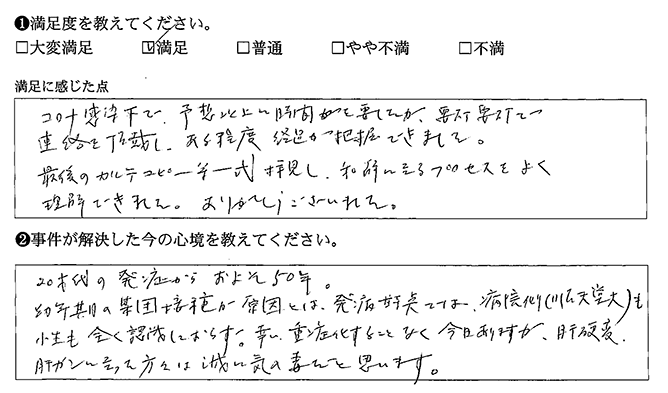 ❶満足度を教えてください。
□大変満足 ☑満足 □普通 □やや不満 □不満
満足に感じた点
コロナ感染下で、予想以上に時間がを要したが、要所要所で
連絡を頂戴し、ある程度経過が把握できました。
最後のカルテコピー等一式拝見し、和解に至るプロセスをよく
理解できました。ありがとうございました。
❷事件が解決した今の心境を教えてください。
20才代の発症からおよそ50年。
幼年期の集団接種が原因とは、発病時点では、病院側(順天堂大)も
小生も全く認識しておらず。幸い重症化することなく今日ありますが、肝硬変、
肝ガンに至った方々は誠に気の毒だと思います。